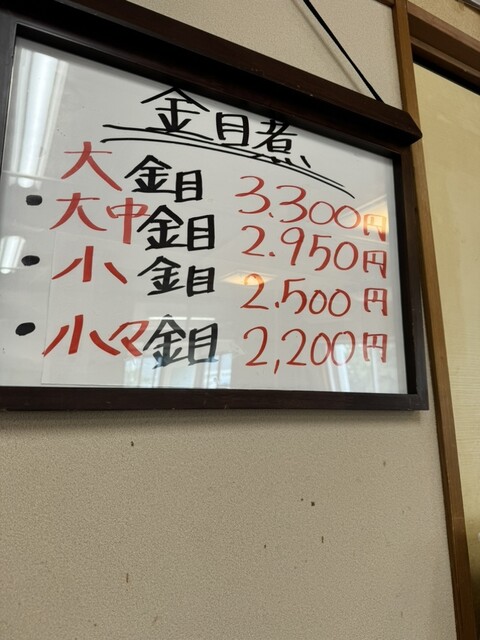 金目煮
大金目 3.300円
・大中金目 2.950円
・小金目 2.500円
・小々金目 2,200円